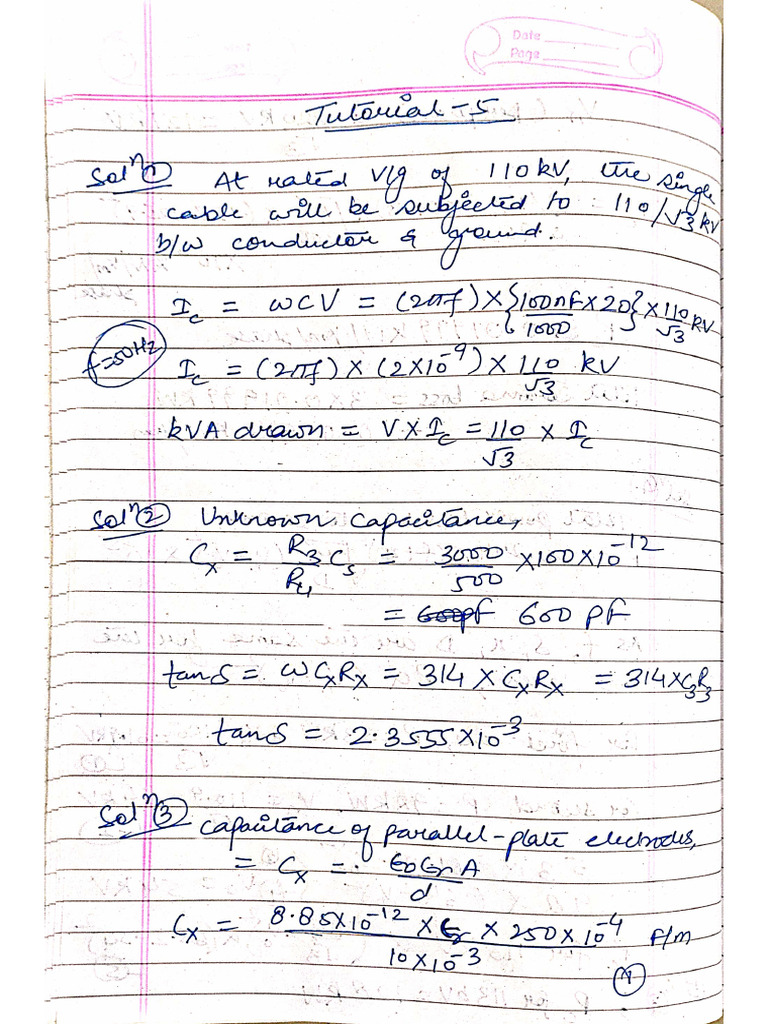 Date
Page
Tutorial-5
Solⁿ① At rated V/g of 110kV, the single
cable will be subjected to : 110/√3 kV
b/w conductor & ground.
I_c = ωCV = (2πf) × {100nF/1000 × 20} × 110/√3 kV
f=50Hz
I_c = (2πf) × (2×10⁻⁹) × 110/√3 kV
kVA drawn = V × I_c = 110/√3 × I_c
Solⁿ② Unknown capacitance,
C_x = R_3/R_4 C_s = 3000/500 × 100 × 10⁻¹²
= 600 pF
tanδ = ωC_xR_x = 314 × C_xR_x = 314×C_3R_3
tanδ = 2.3555×10⁻³
Solⁿ③ Capacitance of parallel-plate electrodes,
= C_x = ε_0ε_rA/d
C_x = 8.85×10⁻¹² × ε_r × 250×10⁻⁴ / 10×10⁻³ F/m
①